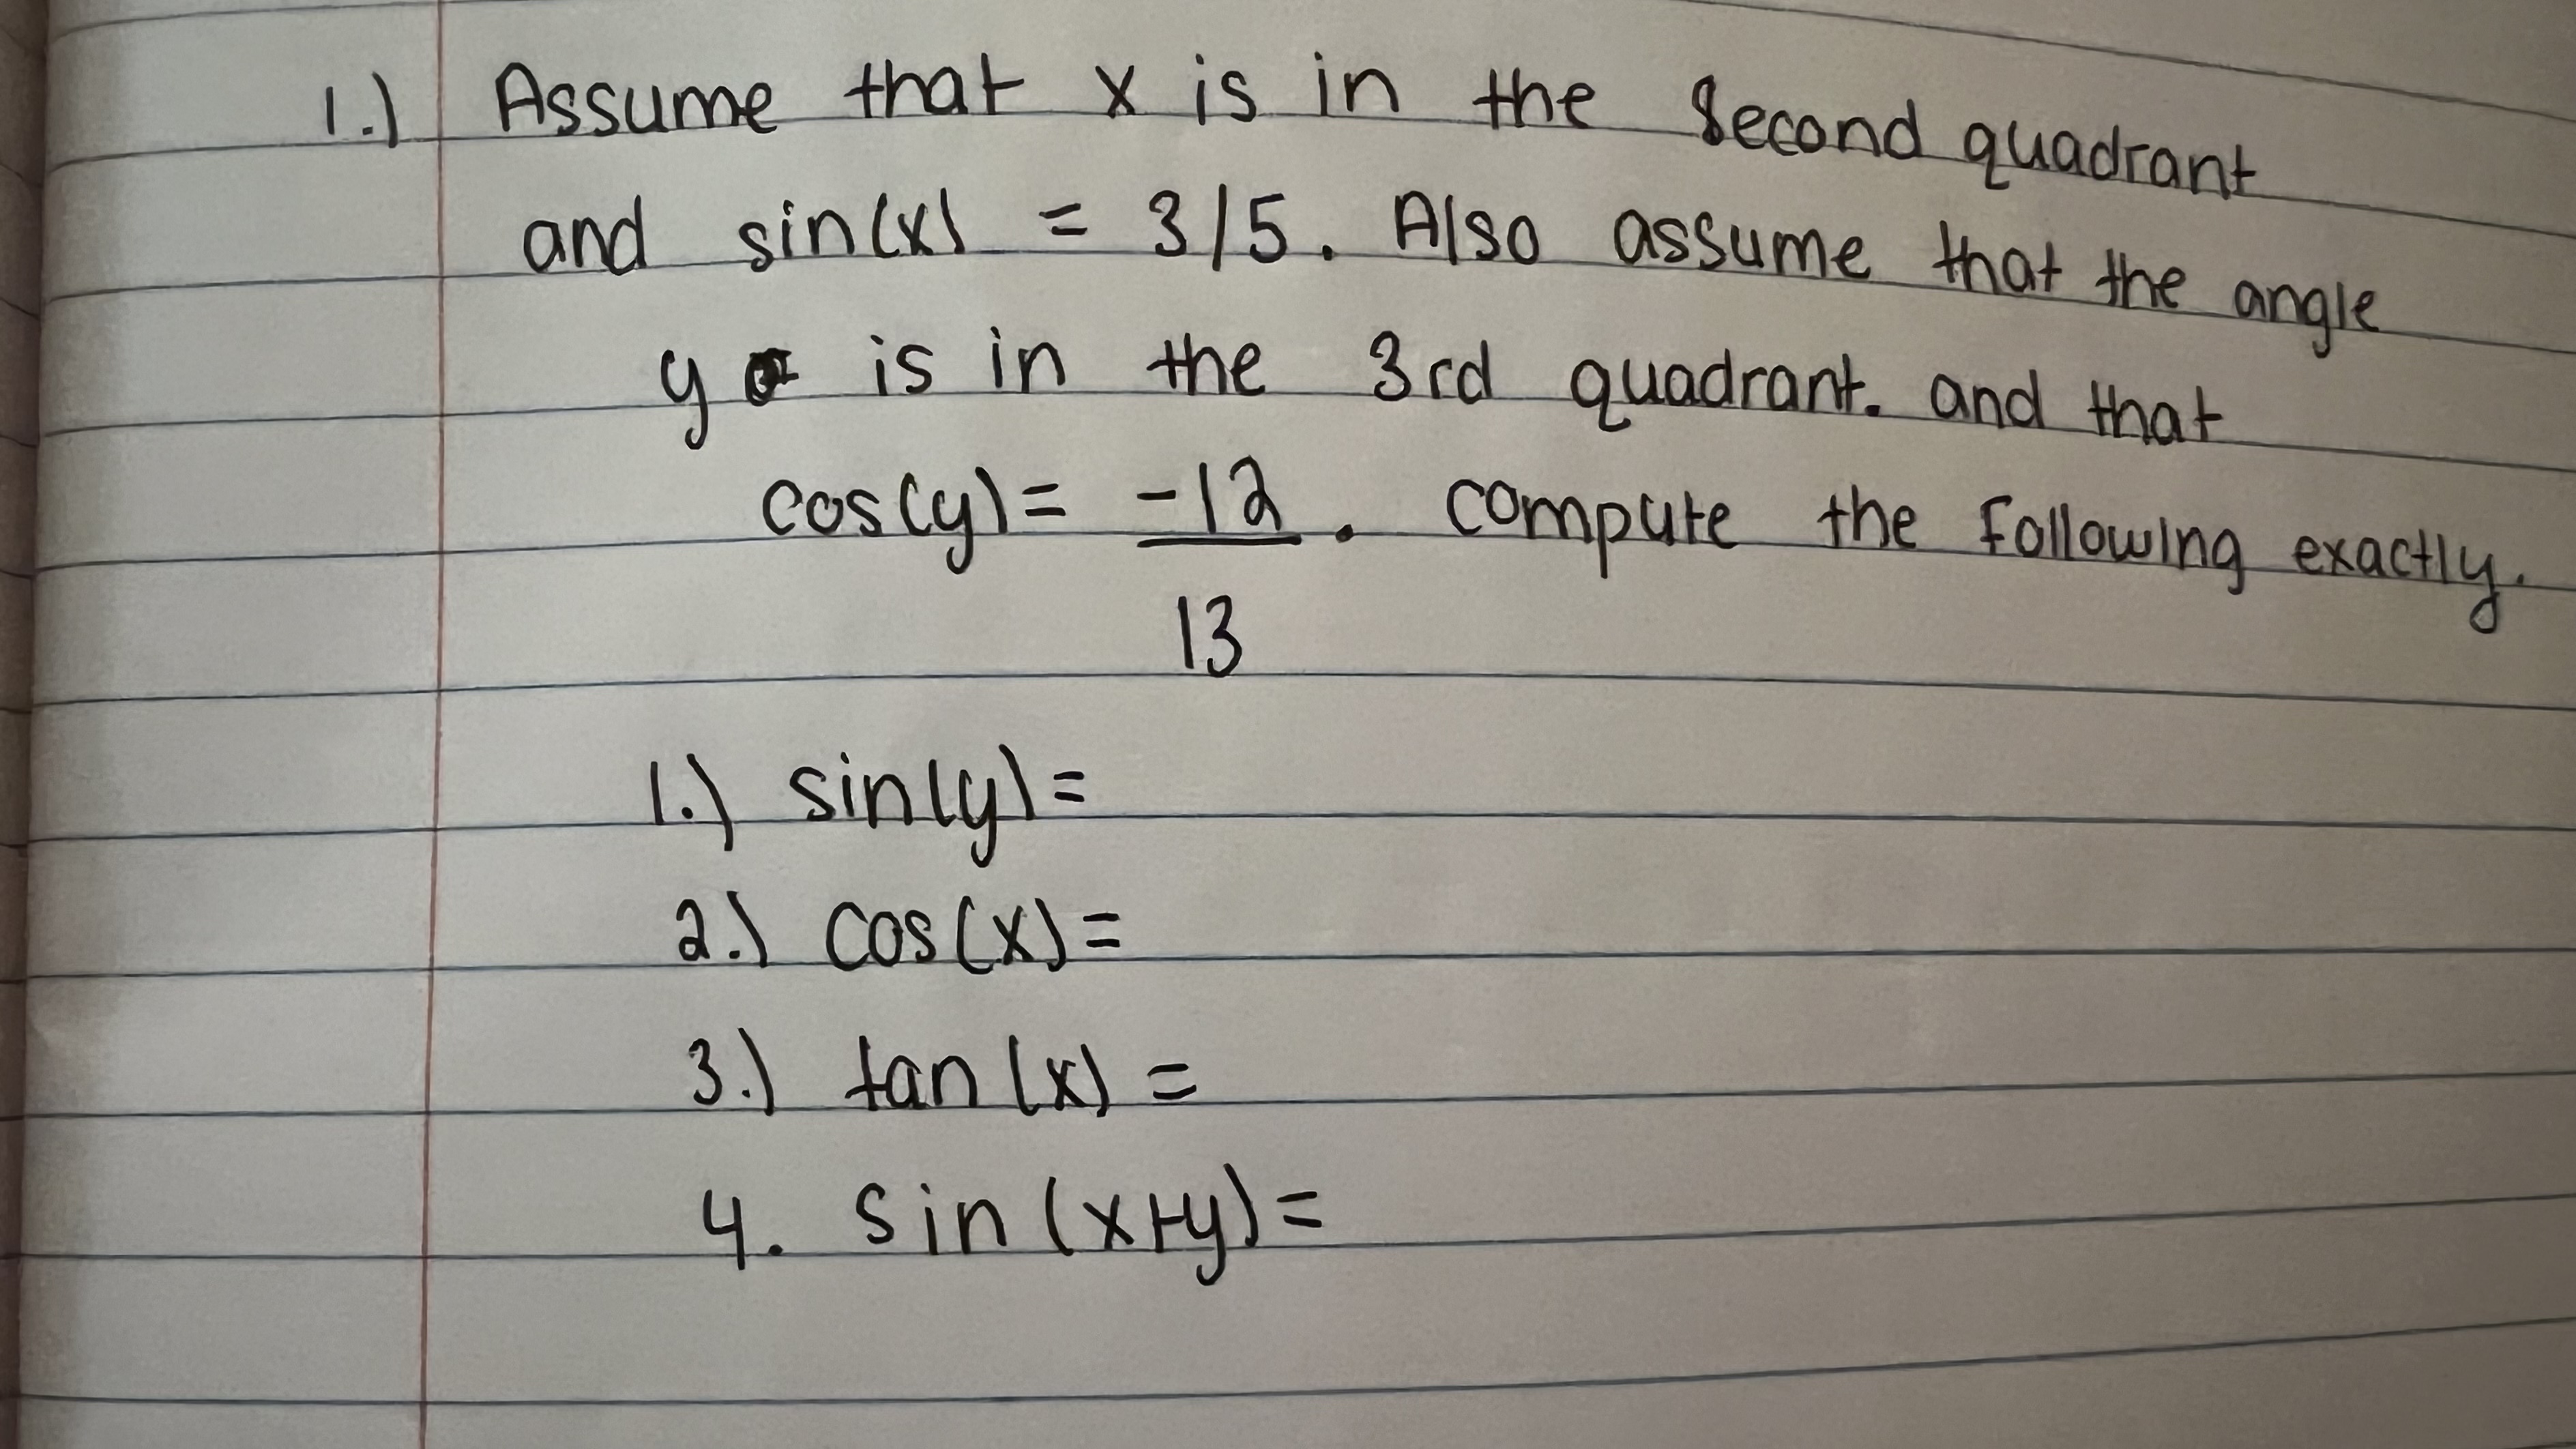 1.) Assume that x is in the Second quadrant
and sin(x) = 3/5. Also assume that the angle
y is in the 3rd quadrant. and that
cos(y) = -12/13. compute the following exactly.
1.) sin(y) =
2.) cos(x) =
3.) tan(x) =
4. sin(x+y) =